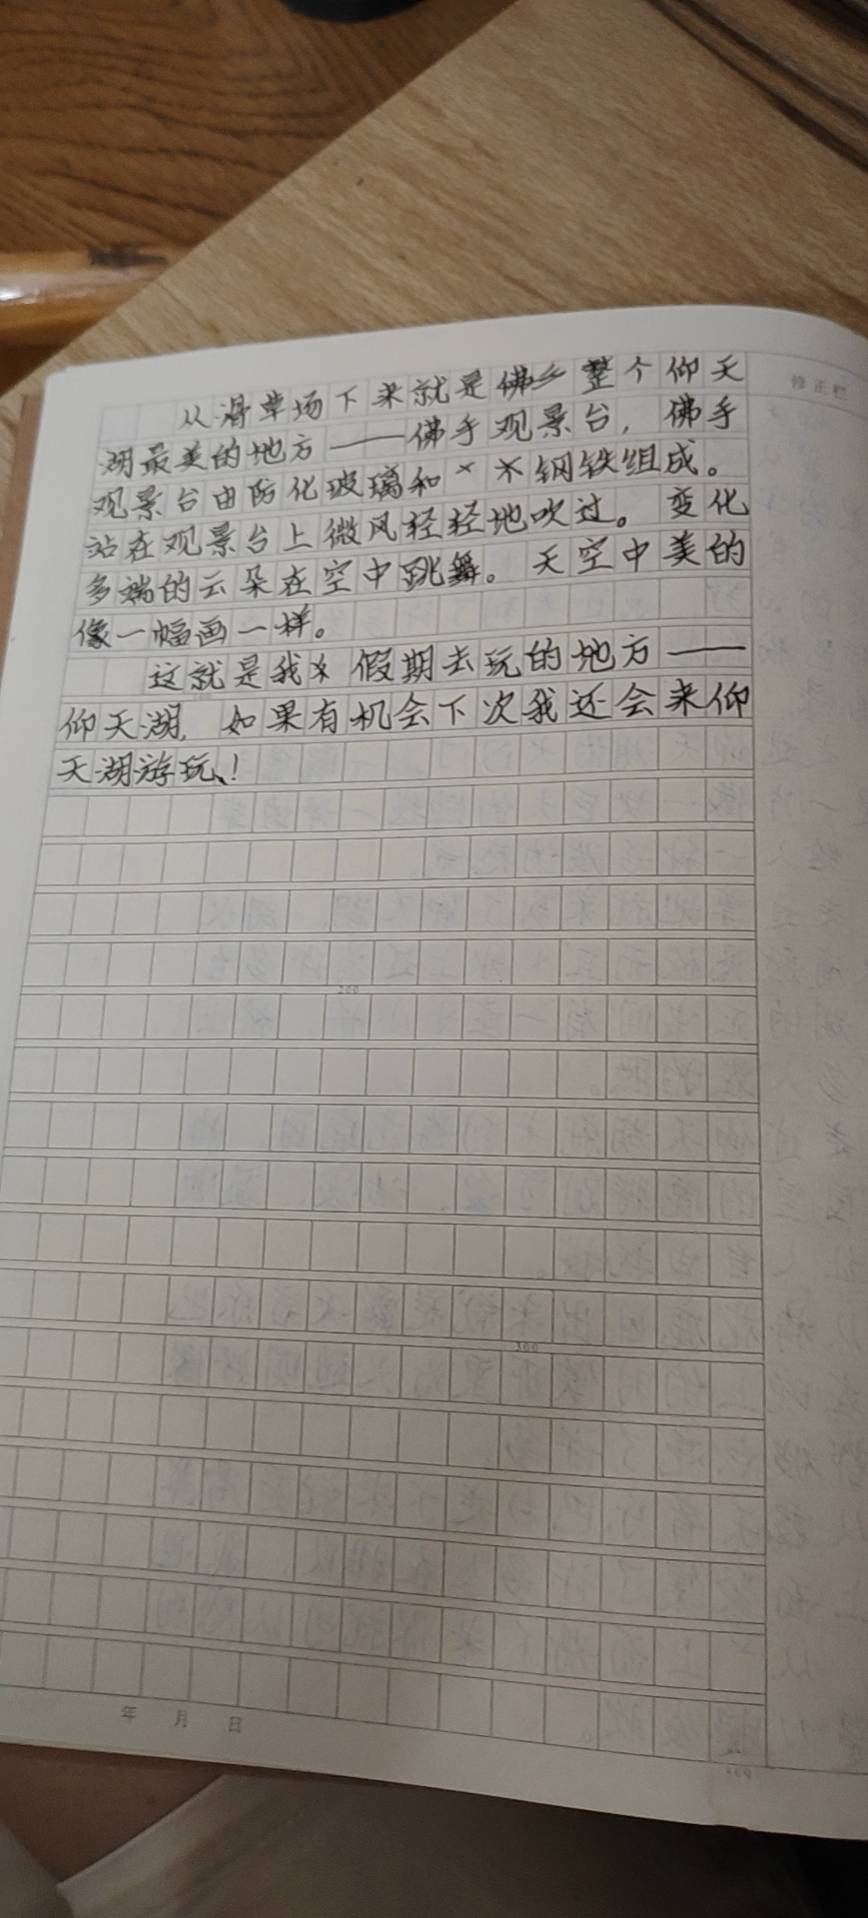 修正栏
从滑草场下来就是佛 整个仰天
湖最美的地方——佛手观景台，佛手
观景台由防化玻璃和 不钢铁组成。
站在观景台上微风轻轻地吹过。变化
多端的云朵在空中跳舞。天空中美的
像一幅画一样。
这就是我 假期去玩的地方——
仰天湖，如果有机会下次我还会来仰
天湖游玩、！
200
300
400
年 月 日